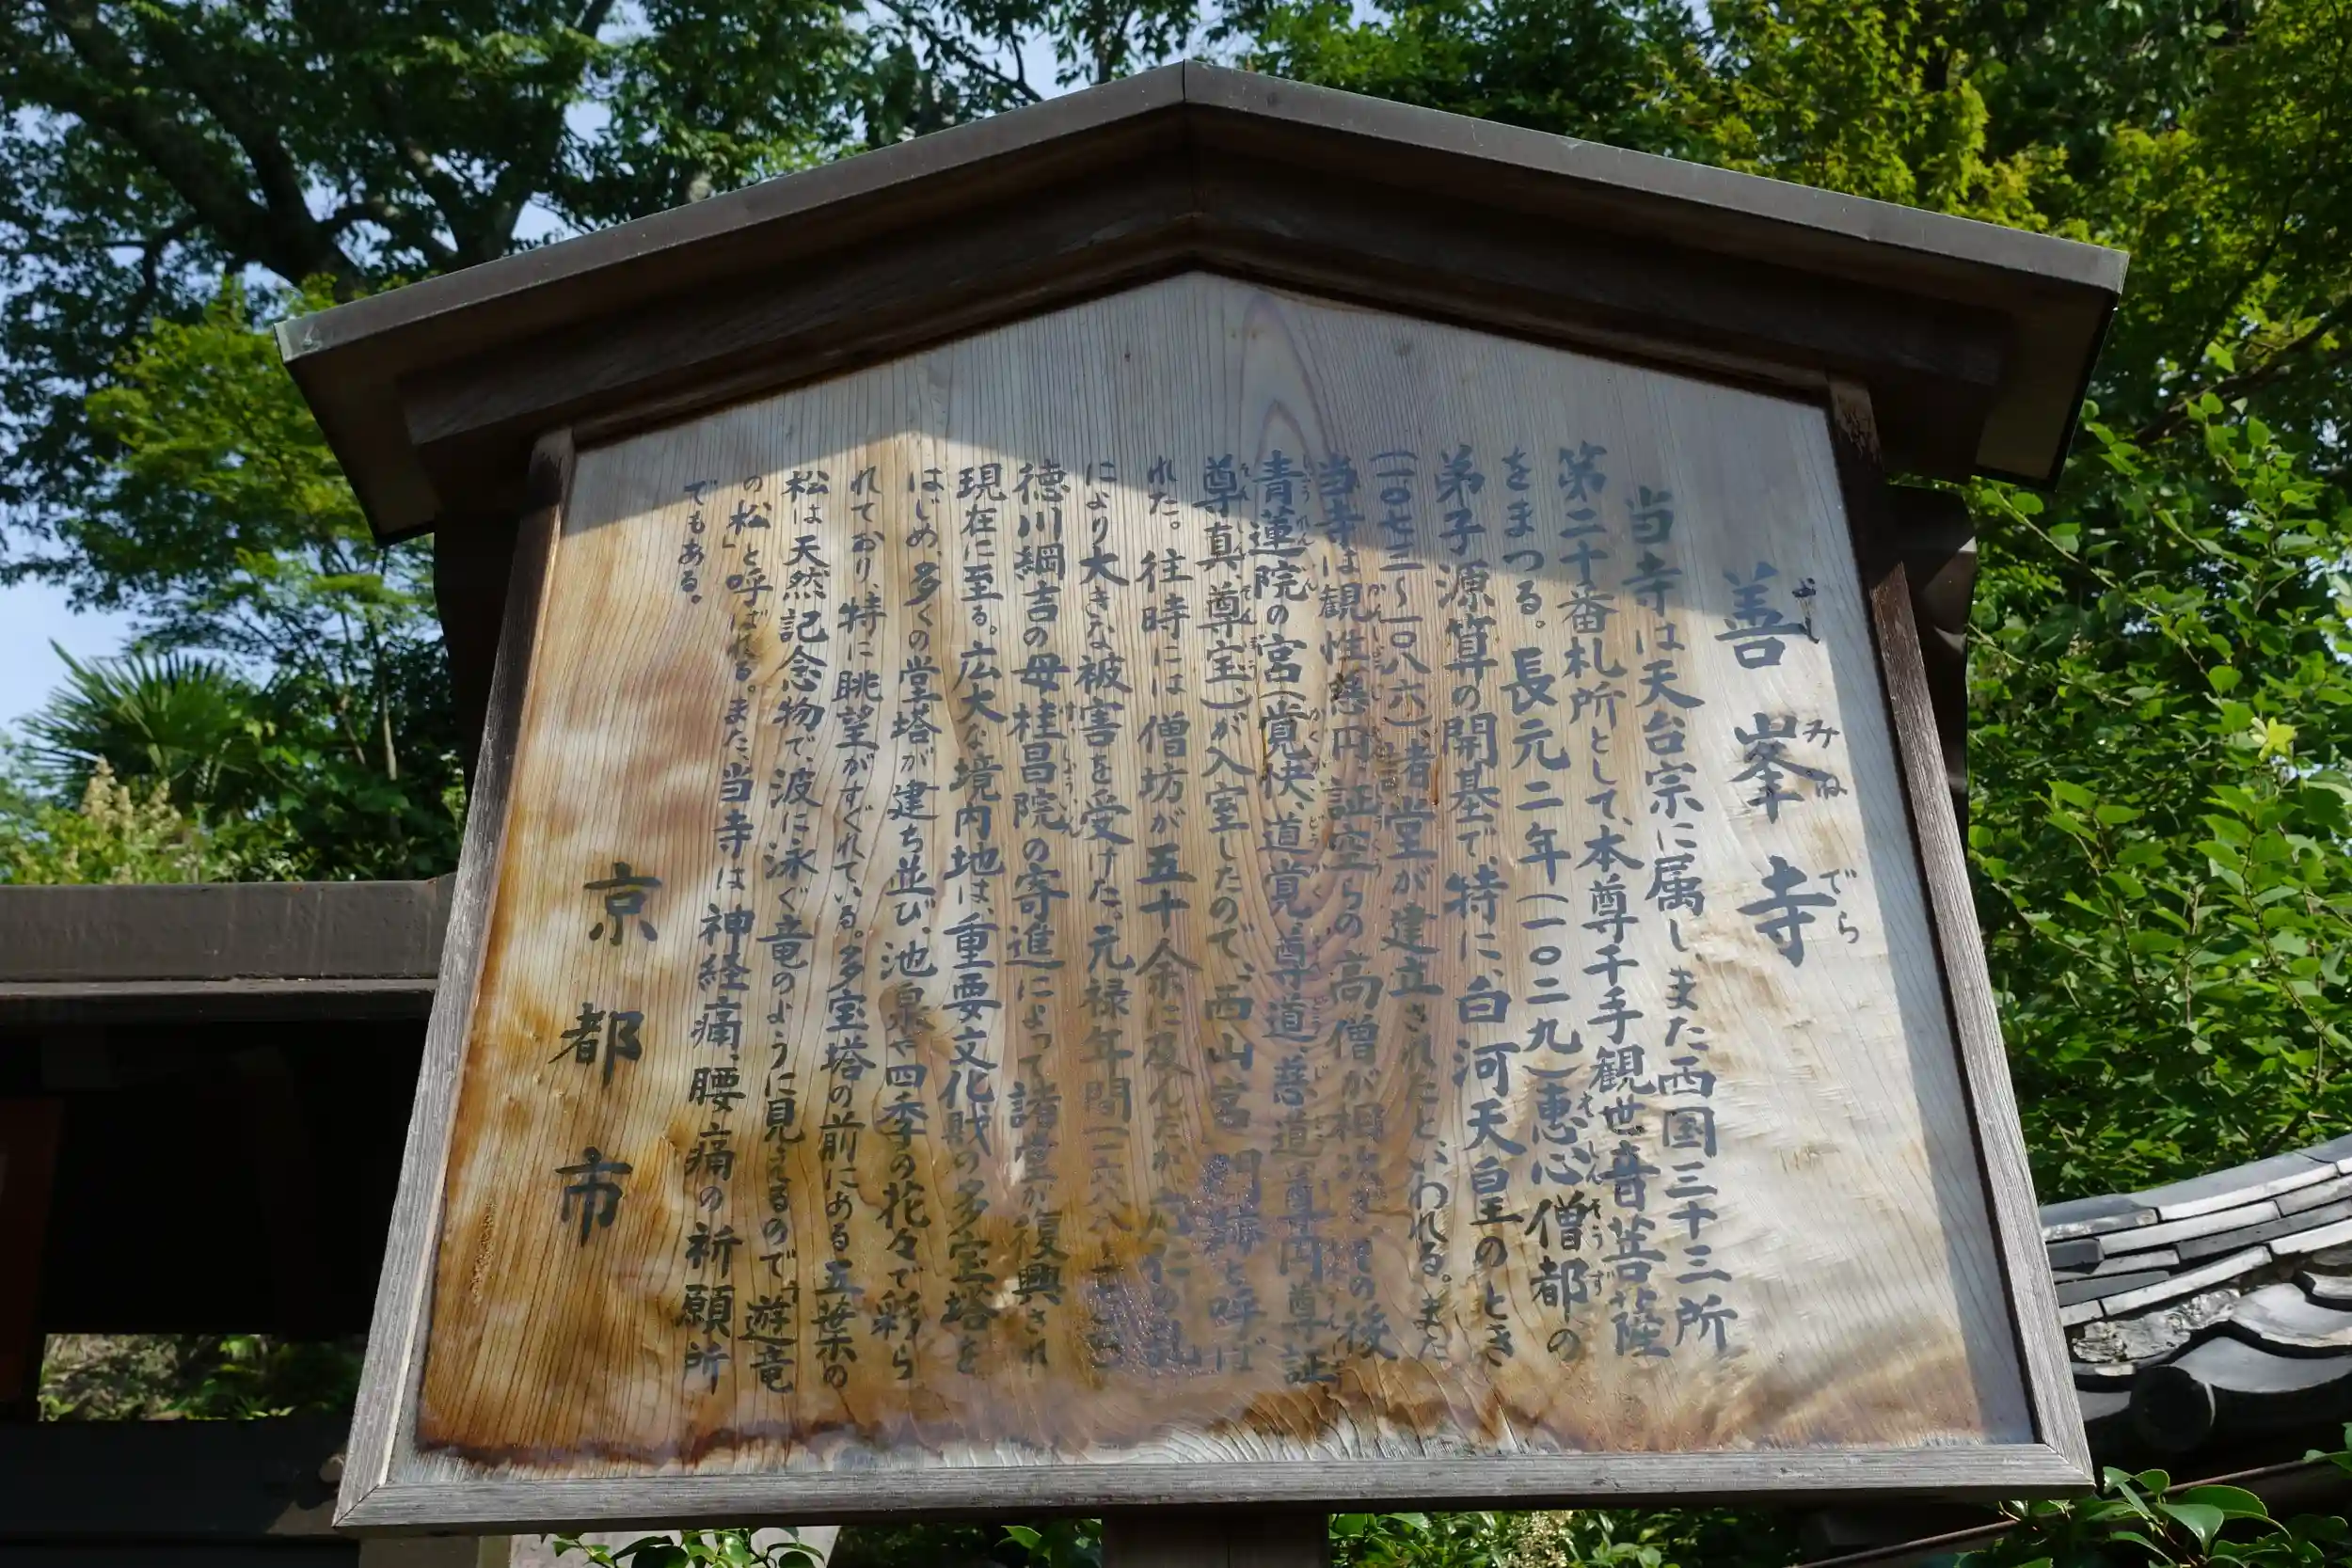 善峯寺
よしみねでら
当寺は天台宗に属し、また西国三十三所
第二十番札所として、本尊千手観世音菩薩
をまつる。長元二年(一〇二九)恵心僧都の
弟子源算の開基で、特に、白河天皇のとき
(一〇七三〜一〇八六)、諸堂が建立されたと、いわれる。また
当寺は観性、慈円、証空らの高僧が相次ぎ、その後
青蓮院の宮(覚快、道覚、尊道、慈道、尊円、尊証
尊真、尊宝、)が入室したので、西山宮門跡と呼ば
れた。往時には僧坊が五十余に及んだが応仁の乱
により大きな被害を受けた。元禄年間
徳川綱吉の母桂昌院の寄進によって諸堂が復興され
現在に至る。広大な境内地は、重要文化財の多宝塔を
はじめ、多くの堂塔が建ち並び、池泉や四季の花々で彩ら
れており、特に眺望がすぐれている。多宝塔の前にある五葉の
松は天然記念物で、波に泳ぐ竜のように見えるので「遊竜
の松」と呼ばれる。また、当寺は神経痛、腰痛の祈願所
でもある。
京都市